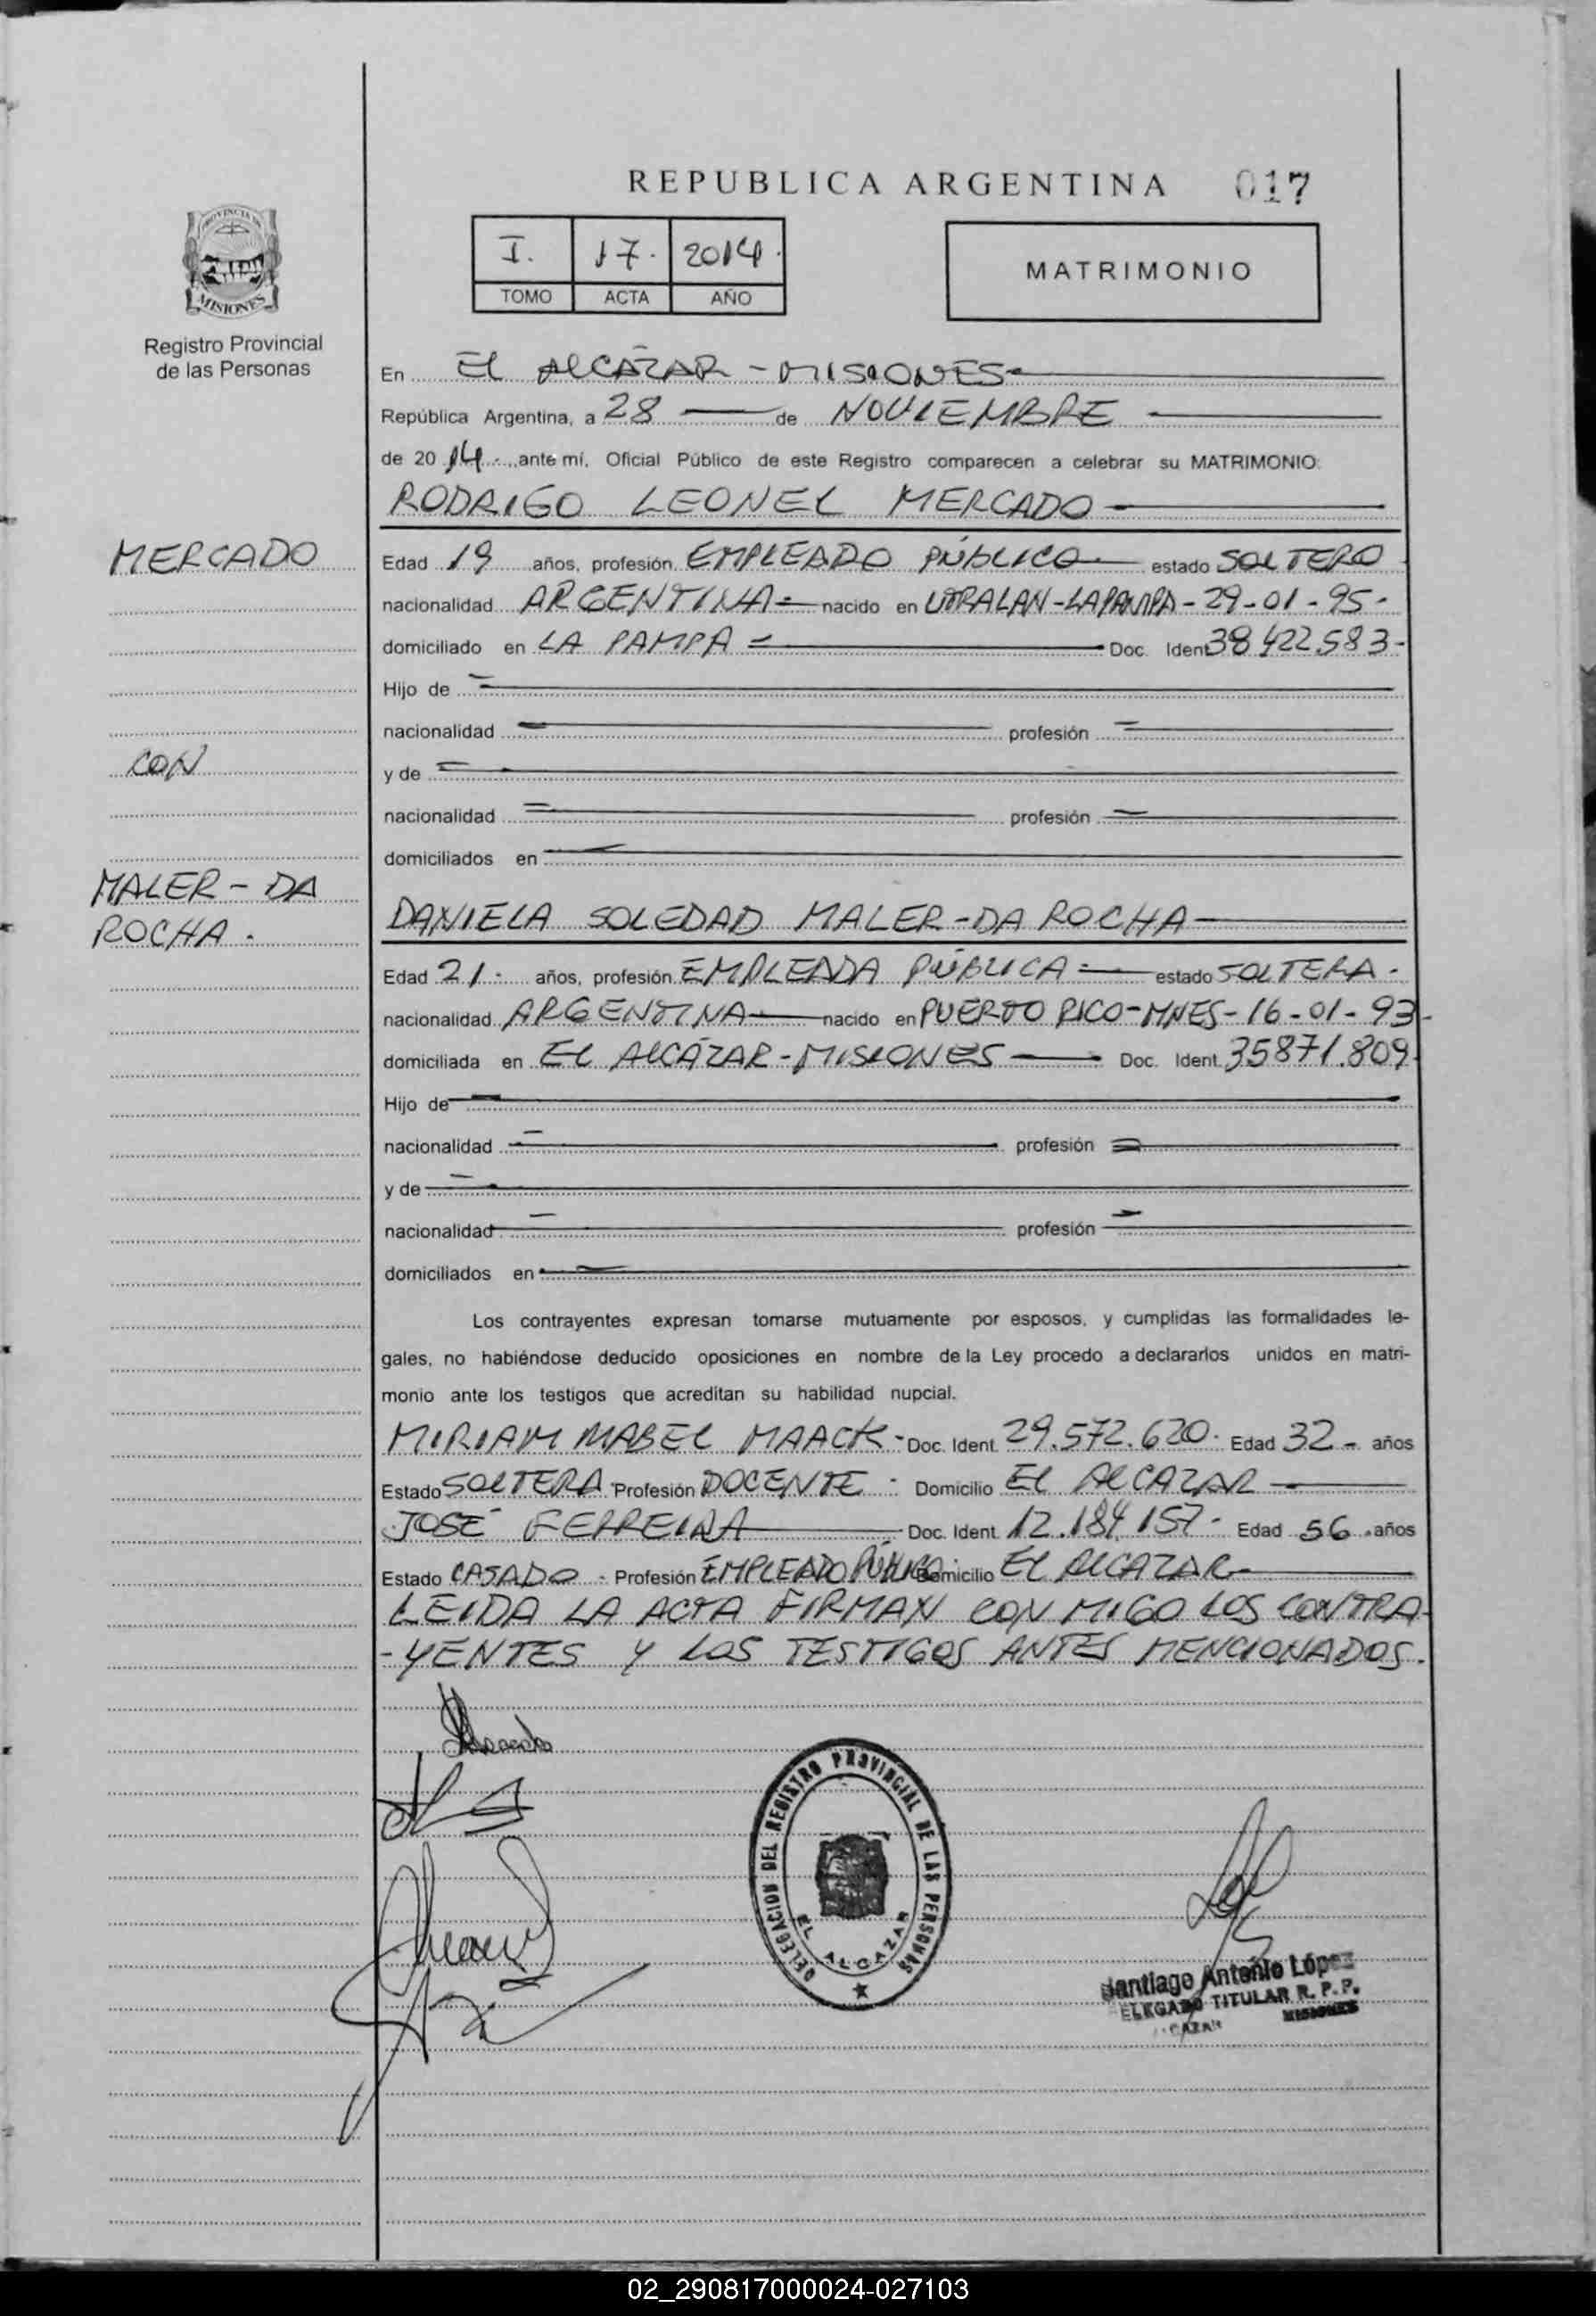 REPUBLICA ARGENTINA 017
PROVINCIA DE
MISIONES
Registro Provincial
de las Personas
I. 17. 2014.
TOMO ACTA AÑO
MATRIMONIO
En EL ALCÁZAR - MISIONES
República Argentina, a 28 de NOVIEMBRE
de 2014. ante mí, Oficial Público de este Registro comparecen a celebrar su MATRIMONIO:
RODRIGO LEONEL MERCADO
MERCADO
Edad 19 años, profesión EMPLEADO PÚBLICO estado SOLTERO
nacionalidad ARGENTINA nacido en - LA PAMPA - 29-01-95-
domiciliado en LA PAMPA Doc. Ident 38422.583-
Hijo de
nacionalidad profesión
CON
y de
nacionalidad profesión
domiciliados en
MALER - DA
ROCHA.
DANIELA SOLEDAD MALER-DA ROCHA
Edad 21 años, profesión EMPLEADA PÚBLICA estado SOLTERA.
nacionalidad ARGENTINA nacido en PUERTO RICO-MNES-16-01-93-
domiciliada en EL ALCÁZAR-MISIONES Doc. Ident. 35871.809
Hijo de
nacionalidad profesión
y de
nacionalidad profesión
domiciliados en
Los contrayentes expresan tomarse mutuamente por esposos, y cumplidas las formalidades le-
gales, no habiéndose deducido oposiciones en nombre de la Ley procedo a declararlos unidos en matri-
monio ante los testigos que acreditan su habilidad nupcial.
MIRIAM MABEL MAACK - Doc. Ident. 29.572.620. Edad 32 - años
Estado SOLTERA Profesión DOCENTE - Domicilio EL ALCAZAR
JOSÉ FERREIRA Doc. Ident. 12.184.157- Edad 56 años
Estado CASADO - Profesión EMPLEADO PÚBLICO Domicilio EL ALCAZAR
LEIDA LA ACTA FIRMAN CON MIGO LOS CONTRA-
-YENTES Y LOS TESTIGOS ANTES MENCIONADOS.
DELEGACION DEL REGISTRO PROVINCIAL DE LAS PERSONAS
EL ALCAZAR
Santiago Antonio López
DELEGADO TITULAR R. P. P.
MISIONES
02_290817000024-027103